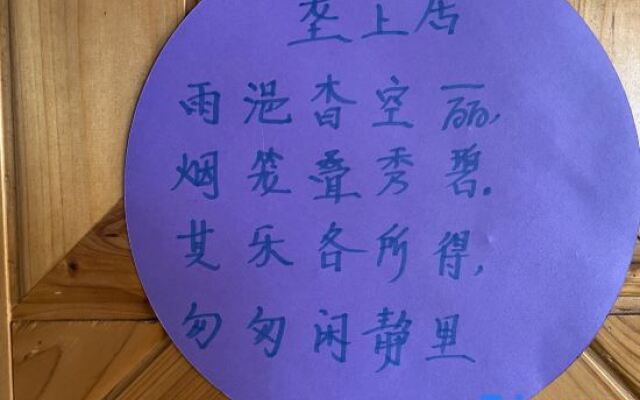 垄上居
雨浥杳空丽,
烟笼叠秀碧.
其乐各所得,
匆匆闲静里